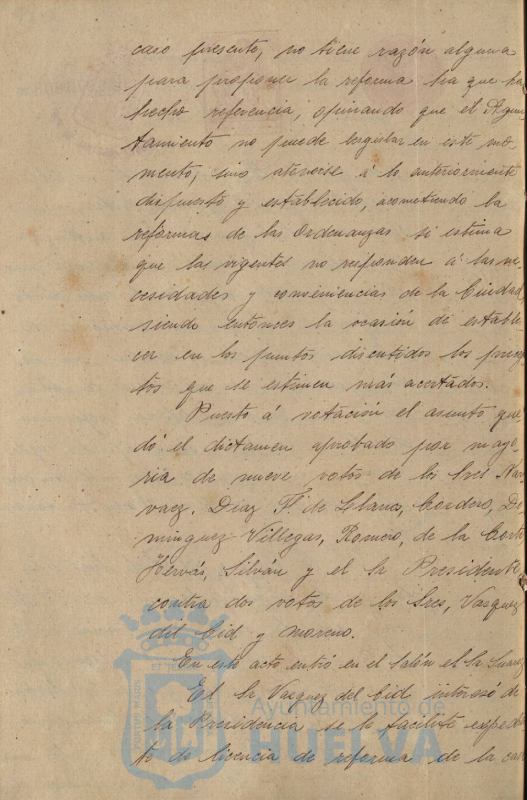 caso presente, no tiene razón alguna
para proponer la reforma ha que ha
hecho referencia, opinando que el Ayun
tamiento no puede legislar en este mo
mento, sino atenerse á lo anteriormente
dispuesto y establecido, acometiendo la
reformas de las Ordenanzas si estima
que las vigentes no responden á las ne
cesidades y conveniencias de la Ciudad,
siendo entonces la ocasión de estable
cer en los puntos discutidos los precep
tos que se estimen más acertados.
Puesto á votación el asunto que
dó el dictamen aprobado por mayo
ria de nueve votos de los Sres Nar
vaez, Diaz F. de Llanos, Cordero, Do
minguez Villegas, Romero, de la Corte
Hervás, Silván y el Sr Presidente
contra dos votos de los Sres, Vazquez
del Cid y Moreno.
En este acto entró en el salón el Sr Suarez
El Sr Vazquez del Cid interesó de
la Presidencia se le facilite expedien
te de licencia de reforma de la casa
PORTUS MARIS
Ayuntamiento de
HUELVA